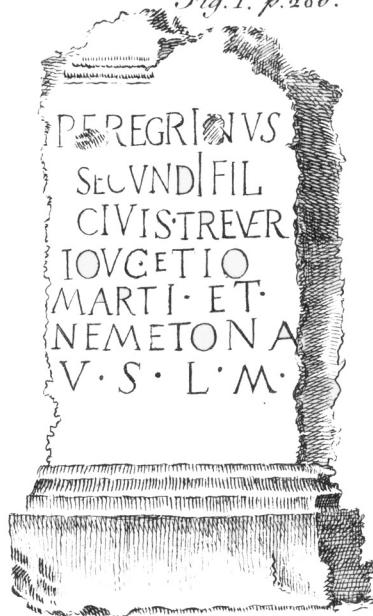 Fig. 1. p. 280.
PEREGRINVS
SECVNDI FIL
CIVIS·TREVER
IOVCETIO
MARTI· ET·
NEMETONA
V · S · L · M ·